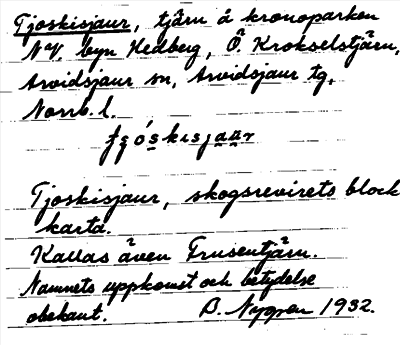 Tjoskisjaur, tjärn å kronoparken
NV. byn Hedberg, Ö. Krokselstjärn,
Arvidsjaur sn, Arvidsjaur tg,
Norrb. l.
Tjoskisjaur, skogsrevirets block
karta.
Kallas även Frusentjärn.
Namnets uppkomst och betydelse
obekant. B. Nygren 1932.